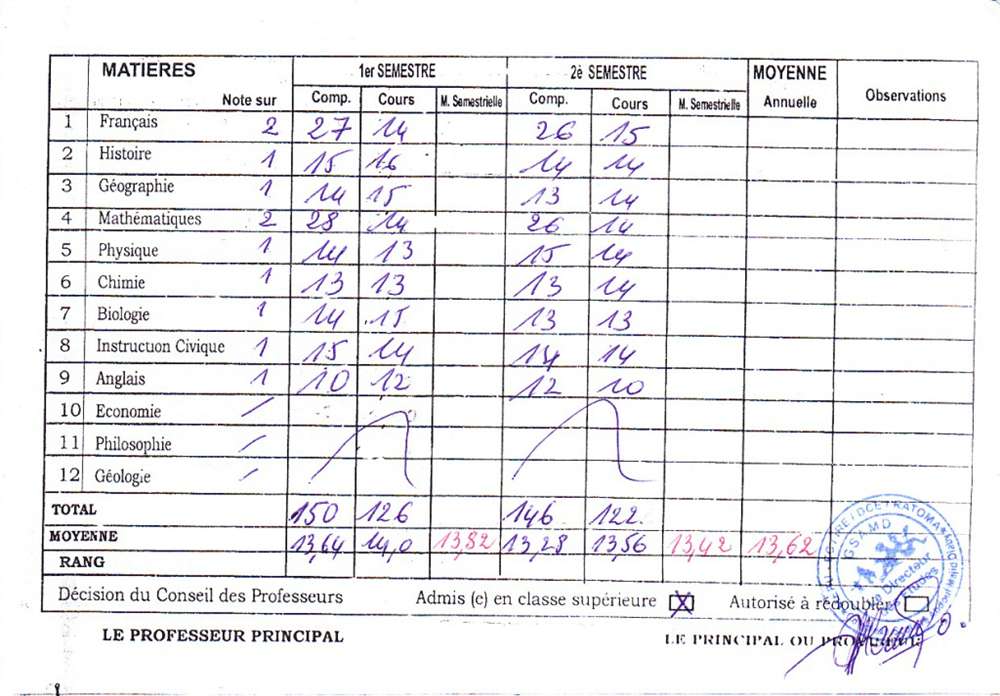 MATIERES 1er SEMESTRE 2é SEMESTRE MOYENNE
Note sur Comp. Cours M. Semestrielle Comp. Cours M. Semestrielle Annuelle Observations
1 Français 2 27 14 26 15
2 Histoire 1 15 16 14 14
3 Géographie 1 14 15 13 14
4 Mathématiques 2 28 14 26 14
5 Physique 1 14 13 15 14
6 Chimie 1 13 13 13 14
7 Biologie 1 14 15 13 13
8 Instruction Civique 1 15 14 14 14
9 Anglais 1 10 12 12 10
10 Economie
11 Philosophie
12 Géologie
TOTAL 150 126 146 122
MOYENNE 13,64 14,0 13,82 13,28 13,56 13,42 13,62
RANG
Décision du Conseil des Professeurs Admis (c) en classe supérieure X Autorisé à redoubler
LE PROFESSEUR PRINCIPAL LE PRINCIPAL OU
GSAMD
Directeur